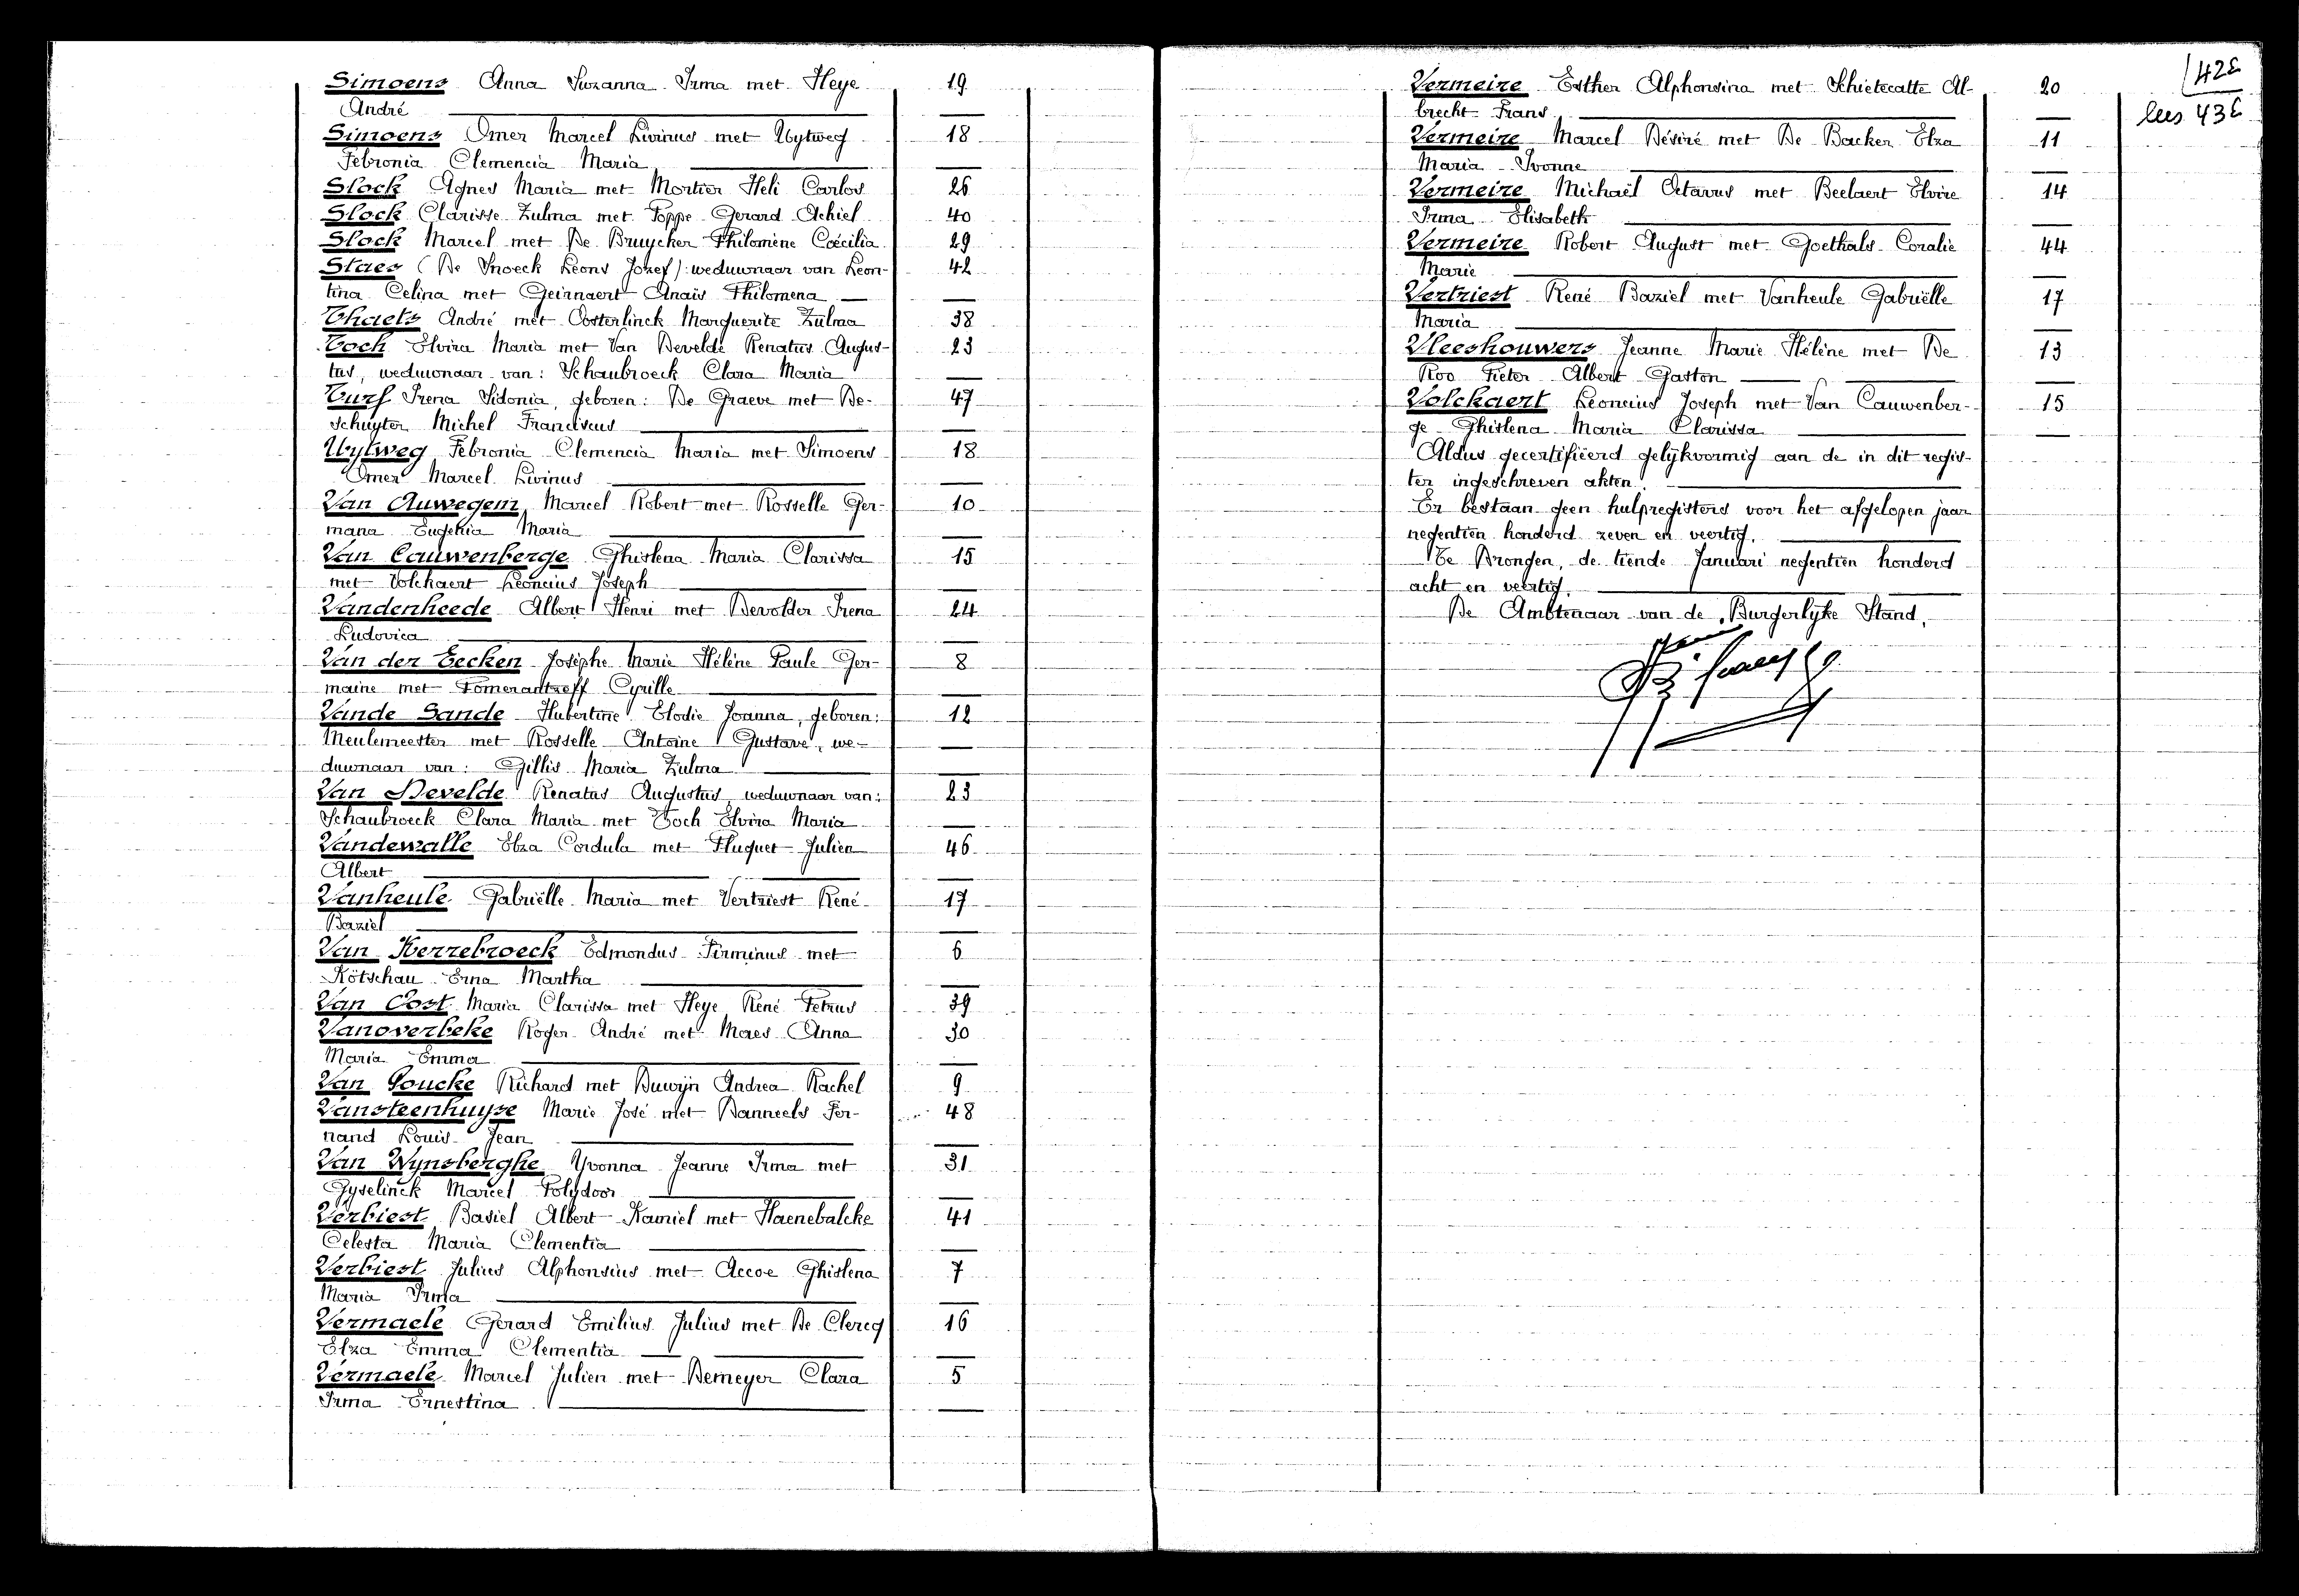 Simoens Anna Suzanna Irma met Heye 19
André
Simoens Omer Marcel Livinus met Uytweg 18
Febronia Clemencia Maria
Slock Agnes Maria met Mortier Heli Carlos 26
Slock Clarisse Zulma met Poppe Gerard Achiel 40
Slock Marcel met De Bruycker Philomène Coecilia 29
Staes (De Snoeck Leons Jozef): weduwnaar van Leon- 42
tina Celina met Geirnaert Anaïs Philomena
Thaels André met Oosterlinck Marguerite Zulma 38
Toch Elvira Maria met Van Develde Renatus Augus- 23
tus, weduwnaar van: Schaubroeck Clara Maria
Turf Irena Sidonia, geboren: De Graeve met De- 47
schuyter Michel Franciscus
Uytweg Febronia Clemencia Maria met Simoens 18
Omer Marcel Livinus
Van Auwegem Marcel Robert met Rosselle Ger- 10
mana Eugenia Maria
Van Cauwenberge Ghislena Maria Clarissa 15
met Volckaert Leoncius Joseph
Vandenheede Albert Henri met Devolder Irena 24
Ludovica
Van der Eecken Josèphe Marie Hélène Paule Ger- 8
maine met Pomerantzeff Cyrille
Vande Sande Hubertine Elodie Joanna, geboren: 12
Meulemeester met Rosselle Antoine Gustave, we-
duwnaar van: Gillis Maria Zulma
Van Develde Renatus Augustus, weduwnaar van: 23
Schaubroeck Clara Maria met Toch Elvira Maria
Vandewalle Elza Cordula met Fluquet Julien 46
Albert
Vanheule Gabriëlle Maria met Vertriest René 17
Baziel
Van Kerrebroeck Edmondus Firminus met 6
Kötschau Erna Martha
Van Oost Maria Clarissa met Heye René Petrus 39
Vanoverbeke Roger André met Maes Anna 30
Maria Emma
Van Poucke Richard met Duwijn Andrea Rachel 9
Vansteenhuyse Marie José met Danneels Fer- 48
nand Louis Jean
Van Wynsberghe Yvonna Jeanne Irma met 31
Gyselinck Marcel Polydoor
Verbiest Basiel Albert Kamiel met Haenebalcke 41
Celesta Maria Clementia
Verbiest Julius Alphonsius met Accoe Ghislena 7
Maria Irma
Vermaele Gerard Emilius Julius met De Clercq 16
Elza Emma Clementia
Vermaele Marcel Julien met Demeyer Clara 5
Irma Ernestina
42E
lees 43E
Vermeire Esther Alphonsina met Schietecatte Al- 20
brecht Frans
Vermeire Marcel Désiré met De Backer Elza 11
Maria Ivonne
Vermeire Michaël Octavus met Beelaert Elvire 14
Irma Elisabeth
Vermeire Robert August met Goethals Coralie 44
Marie
Vertriest René Baziel met Vanheule Gabriëlle 17
Maria
Vleeshouwers Jeanne Marie Hélène met De 13
Roo Pieter Albert Gaston
Volckaert Leoncius Joseph met Van Cauwenber- 15
ge Ghislena Maria Clarissa
Aldus gecertifieerd gelijkvormig aan de in dit regis-
ter ingeschreven akten.
Er bestaan geen hulpregisters voor het afgelopen jaar
negentien honderd zeven en veertig.
Te Drongen, de tiende Januari negentien honderd
acht en veertig.
De Ambtenaar van de Burgerlijke Stand,